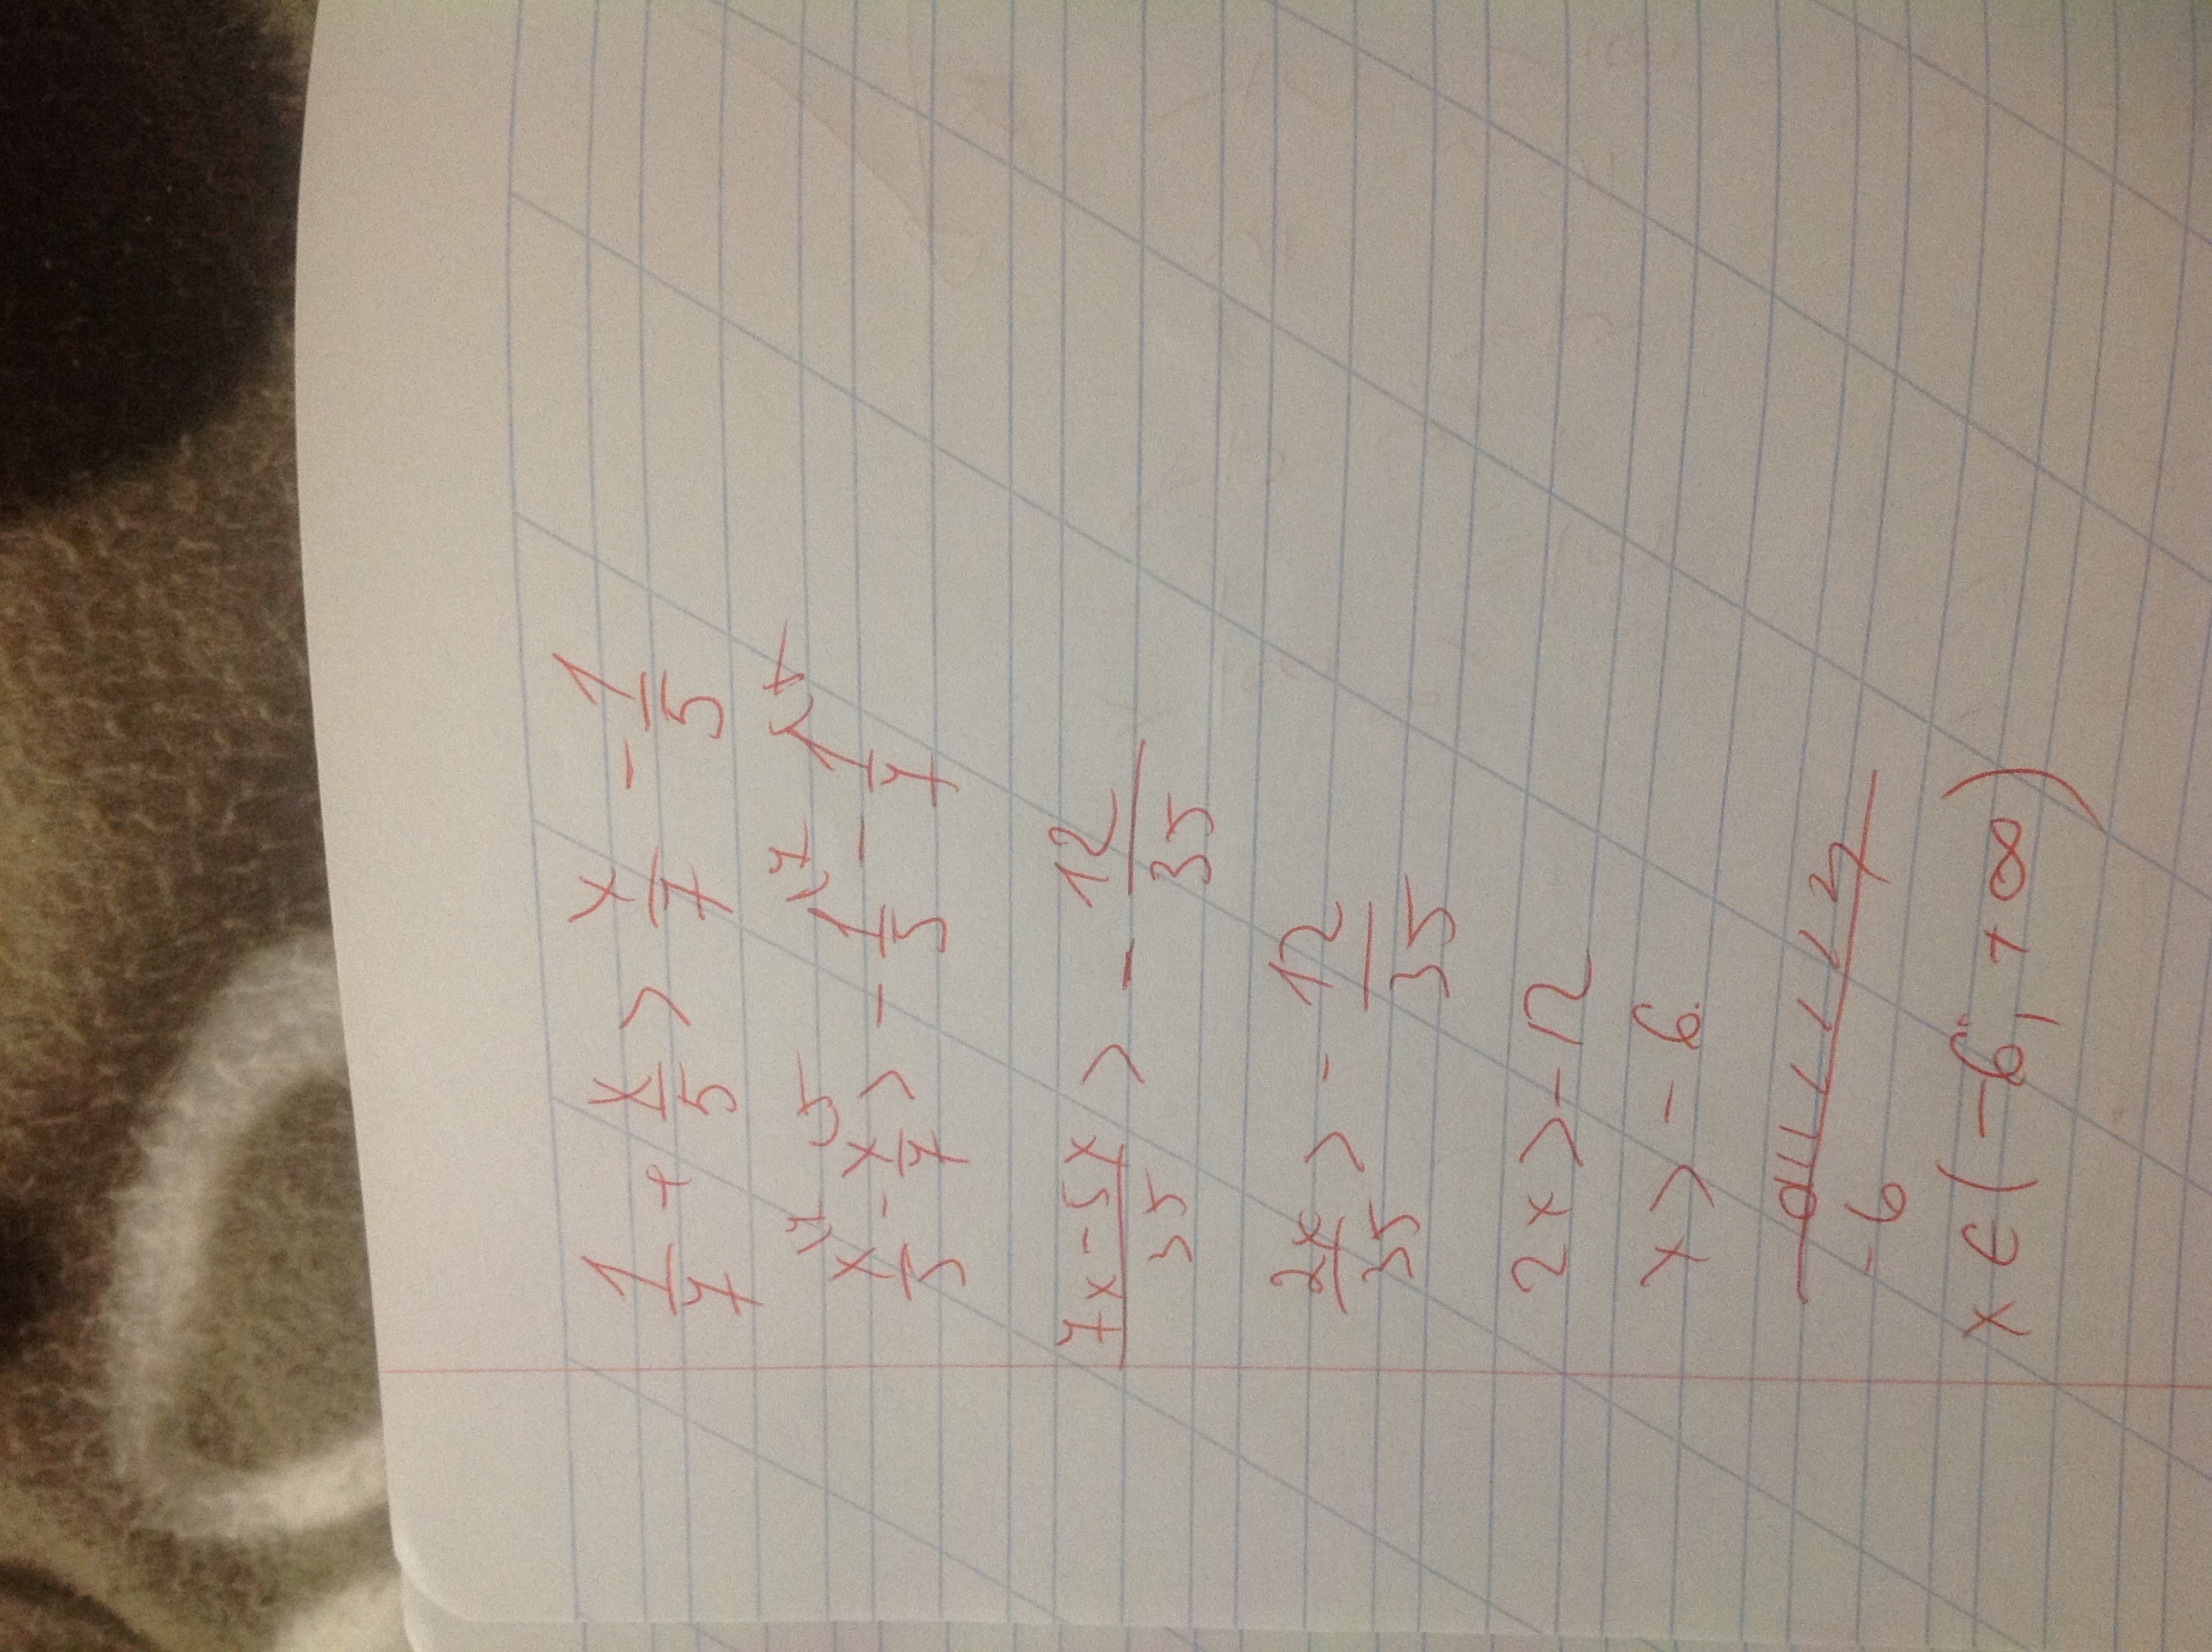 1/7 + x/5 > x/7 - 1/5
x/5 \7 - x/7 \5 > - 1/5 \7 - 1/7 \5
7x-5x/35 > - 12/35
2x/35 > - 12/35
2x > -12
x > - 6
-6
x ∈ (-6; +∞)